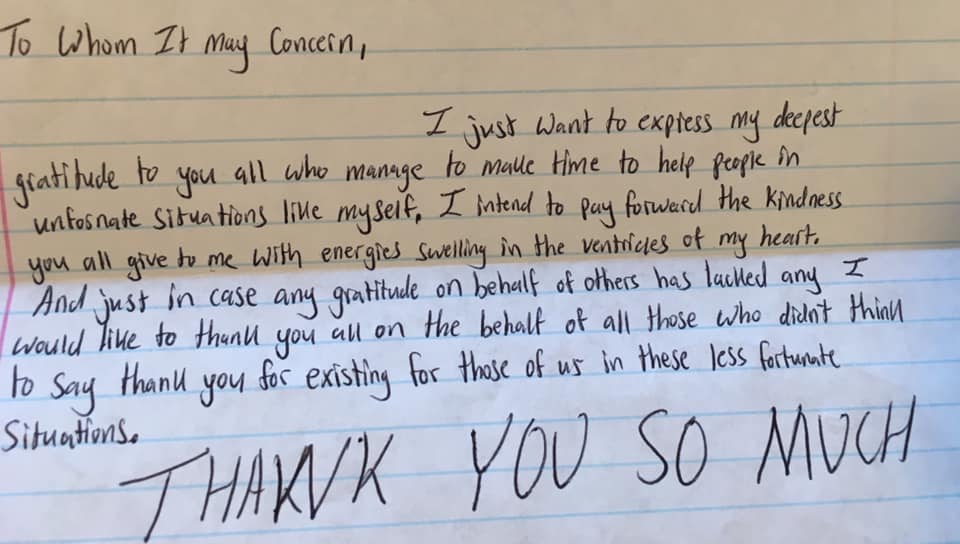 To Whom It May Concern,
I just want to express my deepest
gratitude to you all who manage to make time to help people in
unfosnate situations like myself, I intend to pay forward the kindness
you all give to me with energies swelling in the ventricles of my heart.
And just in case any gratitude on behalf of others has lacked any I
would like to thank you all on the behalf of all those who didn't think
to say thank you for existing for those of us in these less fortunate
situations.
THANK YOU SO MUCH